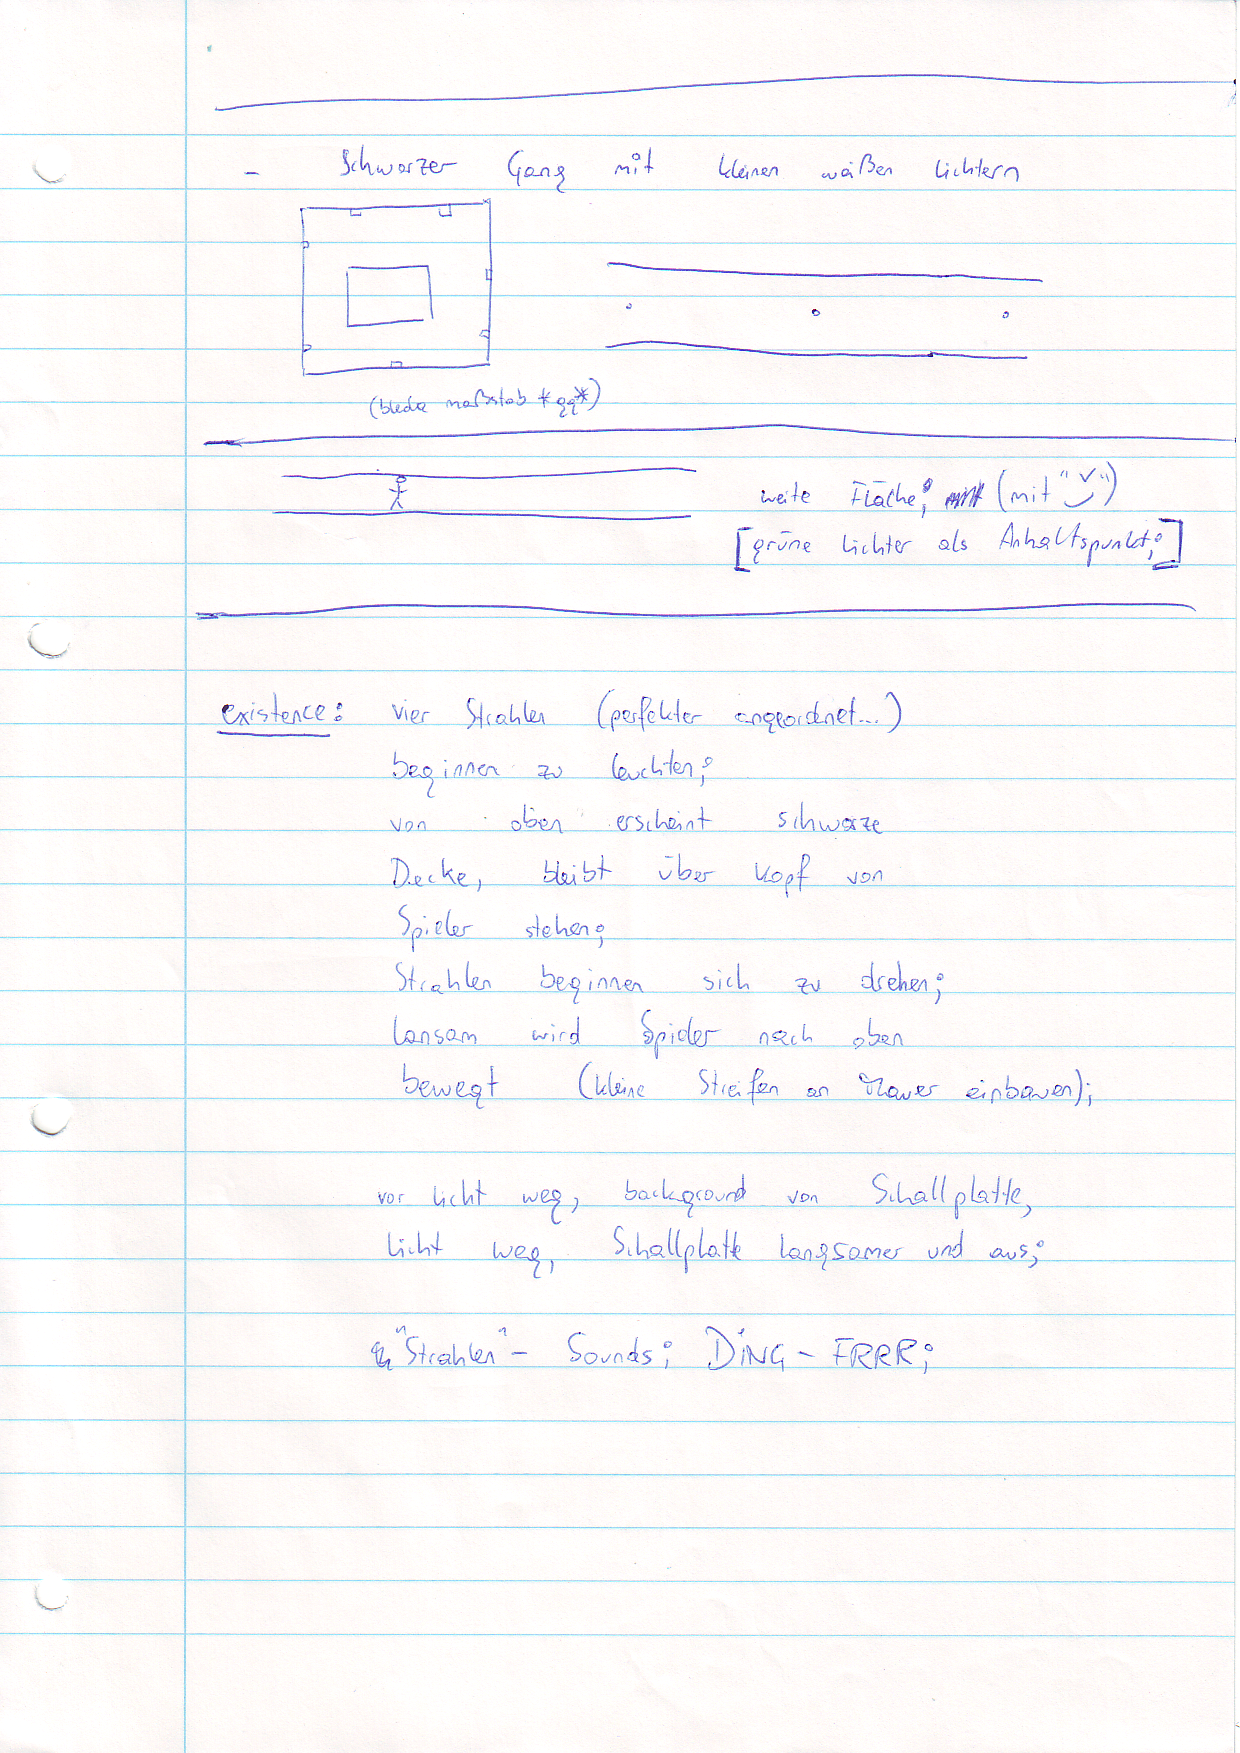 - Schwarzer Gang mit kleinen wäißen Lichtern
(bleda maßstab *gg*)
weite Fläche; (mit "
[grüne Lichter als Anhaltspunkt;]
existence: vier Strahlen (perfekter angeordnet...)
beginnen zu leuchten;
von oben erscheint schwarze
Decke, bleibt über Kopf von
Spieler stehen;
Strahlen beginnen sich zu drehen;
lansam wird Spieler nach oben
bewegt (kleine Streifen an Mauer einbauen);
vor licht weg, background von Schallplatte,
licht weg, Schallplatte langsamer und aus;
"Strahlen" - Sounds; DiNG - FRRR;